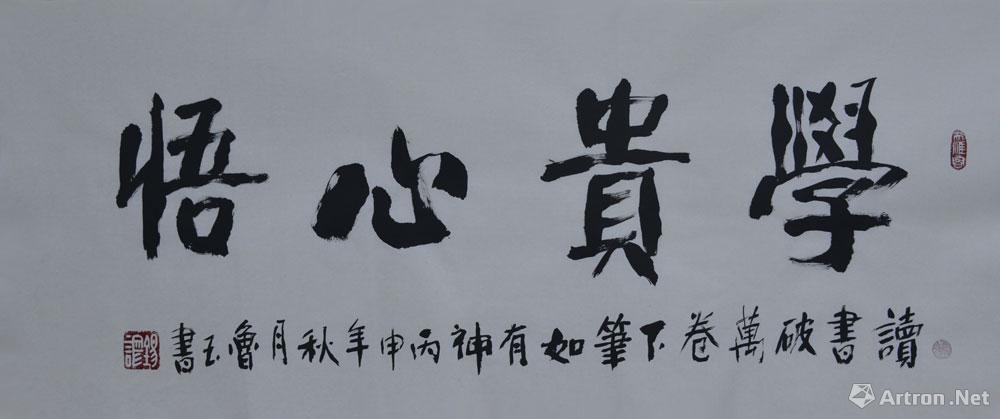 學貴心悟
讀書破萬卷下筆如有神丙申年秋月魯玉書
Artron.Net